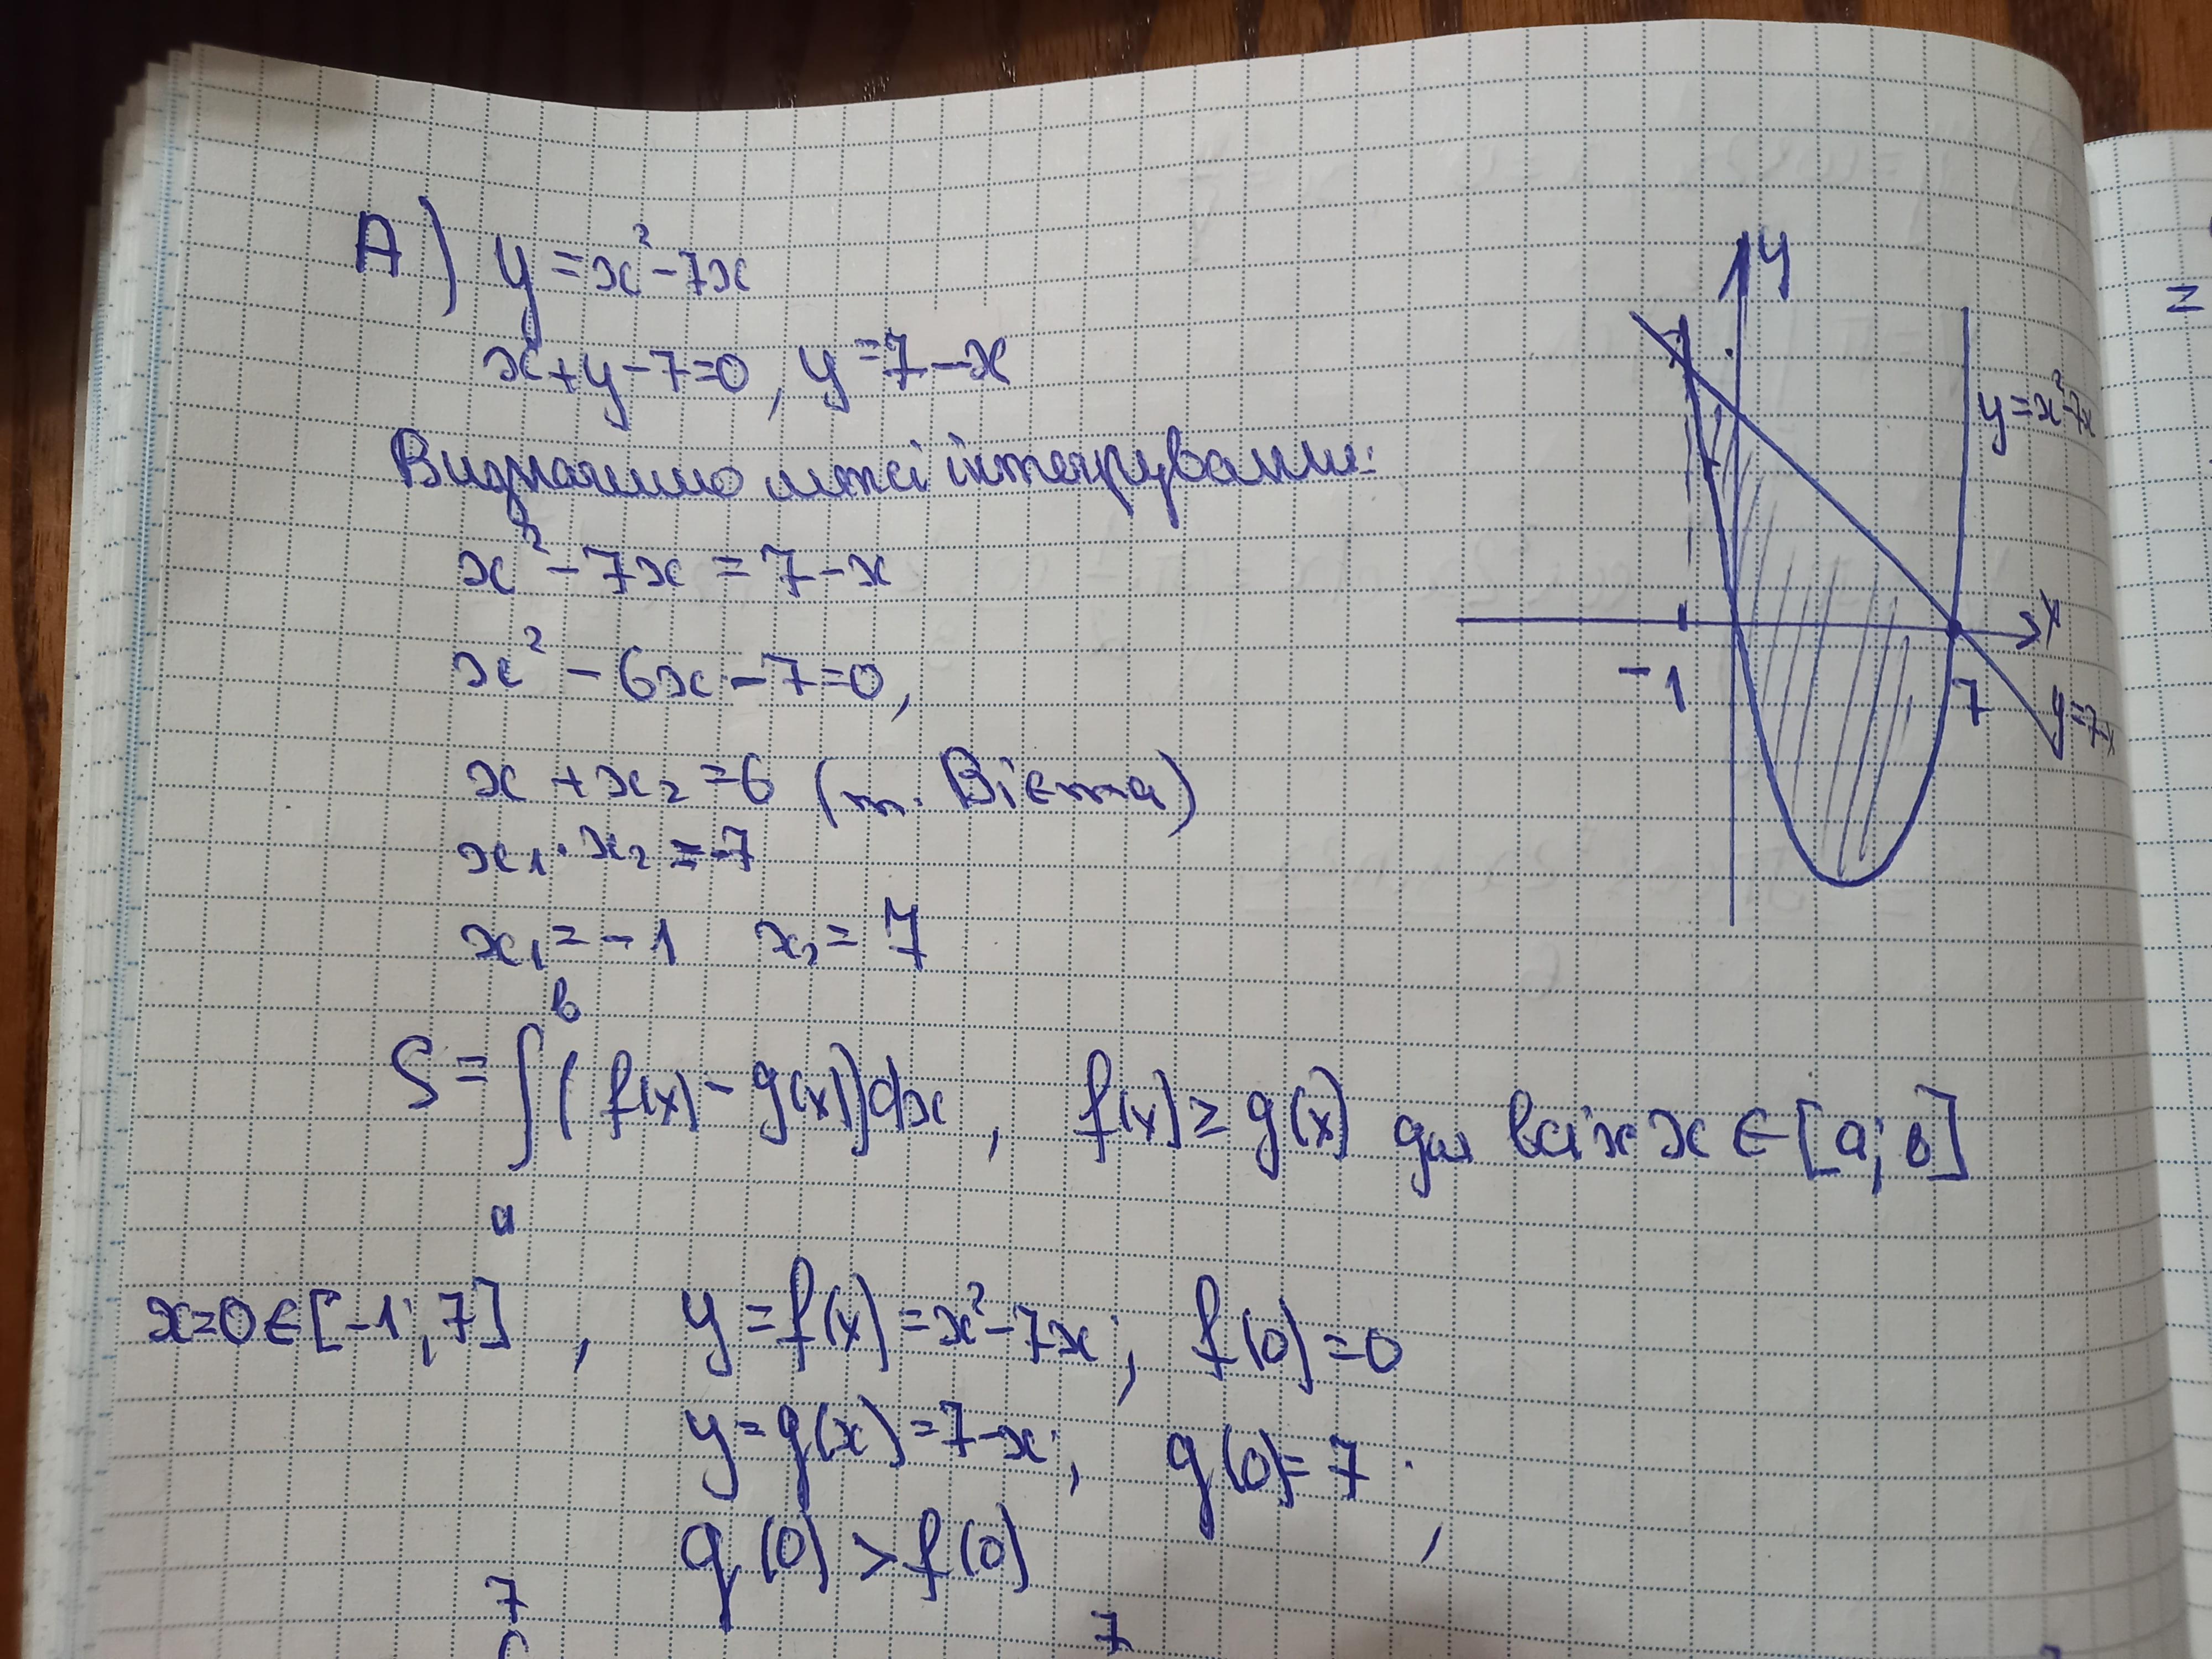 А) y = x² - 7x
x + y - 7 = 0, y = 7 - x
Визначимо межі інтегрування:
x² - 7x = 7 - x
x² - 6x - 7 = 0,
x + x₂ = 6 (т. Вієта)
x₁ · x₂ = -7
x₁ = -1 x₂ = 7
S = ∫ₐᵇ (f(x) - g(x))dx, f(x) ≥ g(x) для всіх x ∈ [a; b]
x = 0 ∈ [-1; 7], y = f(x) = x² - 7x; f(0) = 0
y = g(x) = 7 - x; g(0) = 7.
g(0) > f(0),
7
7
y
y = x² - 7x
x
-1
7
y = 7-x
=